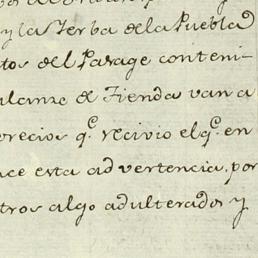 y la Yerba dela Puebla
tos del Parage conteni-
alcanze de Tienda van a
precios q.e recivio el q.e en
ace esta advertencia, por
tros algo adulterados y